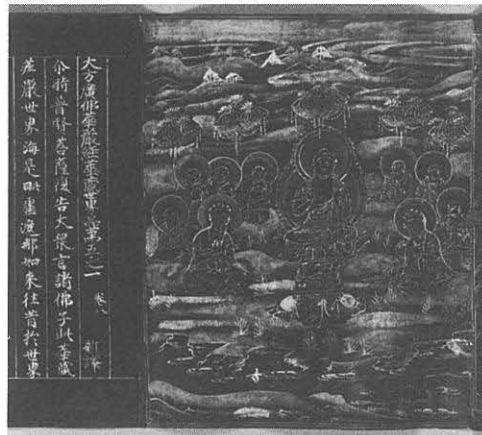 大方廣佛華嚴經華藏世界品第五之一 卷八 新譯
尒時普賢菩薩復告大衆言諸佛子此華藏
莊嚴世界海是毗盧遮那如來往昔於世界